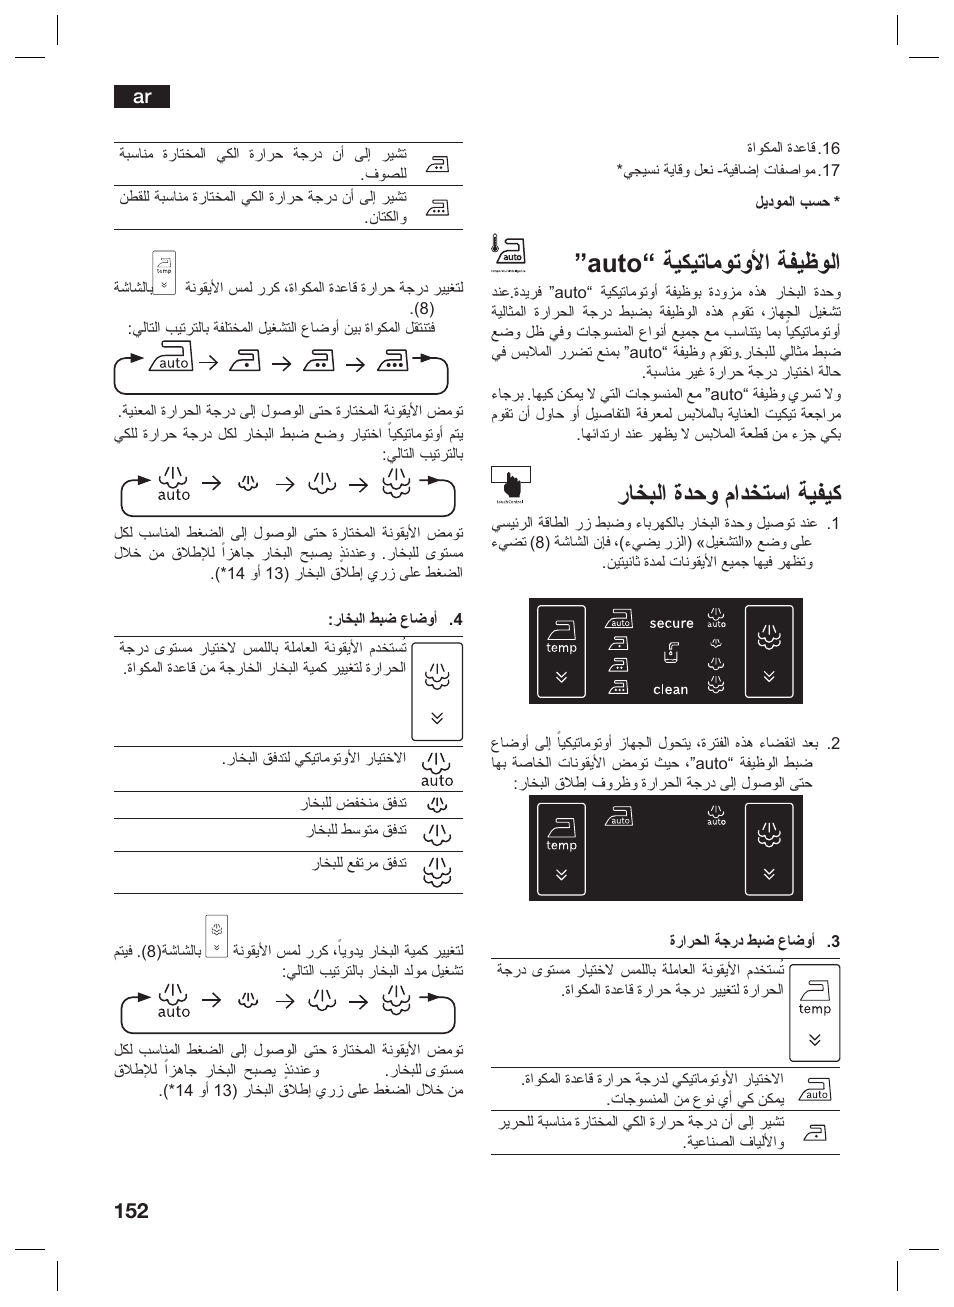 ar
16. قاعدة المكواة
17. مواصفات إضافية- نعل وقاية نسيجي*
* حسب الموديل
الوظيفة الأوتوماتيكية “auto”
auto
وحدة البخار هذه مزودة بوظيفة أوتوماتيكية “auto” فريدة.عند
تشغيل الجهاز، تقوم هذه الوظيفة بضبط درجة الحرارة المثالية
أوتوماتيكياً بما يتناسب مع جميع أنواع المنسوجات وفي ظل وضع
ضبط مثالي للبخار.وتقوم وظيفة “auto” بمنع تضرر الملابس في
حالة اختيار درجة حرارة غير مناسبة.
ولا تسري وظيفة “auto” مع المنسوجات التي لا يمكن كيها. برجاء
مراجعة تيكيت العناية بالملابس لمعرفة التفاصيل أو حاول أن تقوم
بكي جزء من قطعة الملابس لا يظهر عند ارتدائها.
كيفية استخدام وحدة البخار
touchControl
1. عند توصيل وحدة البخار بالكهرباء وضبط زر الطاقة الرئيسي
على وضع «التشغيل» (الزر يضيء)، فإن الشاشة (8) تضيء
وتظهر فيها جميع الأيقونات لمدة ثانيتين.
temp
auto
secure
clean
auto
2. بعد انقضاء هذه الفترة، يتحول الجهاز أوتوماتيكياً إلى أوضاع
ضبط الوظيفة “auto”، حيث تومض الأيقونات الخاصة بها
حتى الوصول إلى درجة الحرارة وظروف إطلاق البخار:
temp
auto
auto
3. أوضاع ضبط درجة الحرارة
تُستخدم الأيقونة العاملة باللمس لاختيار مستوى درجة
الحرارة لتغيير درجة حرارة قاعدة المكواة.
temp
الاختيار الأوتوماتيكي لدرجة حرارة قاعدة المكواة.
يمكن كي أي نوع من المنسوجات.
auto
تشير إلى أن درجة حرارة الكي المختارة مناسبة للحرير
والألياف الصناعية.
تشير إلى أن درجة حرارة الكي المختارة مناسبة
للصوف.
تشير إلى أن درجة حرارة الكي المختارة مناسبة للقطن
والكتان.
temp
لتغيير درجة حرارة قاعدة المكواة، كرر لمس الأيقونة بالشاشة
(8).
فتنتقل المكواة بين أوضاع التشغيل المختلفة بالترتيب التالي:
auto
تومض الأيقونة المختارة حتى الوصول إلى درجة الحرارة المعنية.
يتم أوتوماتيكياً اختيار وضع ضبط البخار لكل درجة حرارة للكي
بالترتيب التالي:
auto
تومض الأيقونة المختارة حتى الوصول إلى الضغط المناسب لكل
مستوى للبخار. وعندئذٍ يصبح البخار جاهزاً للإطلاق من خلال
الضغط على زري إطلاق البخار (13 أو 14*).
4. أوضاع ضبط البخار:
تُستخدم الأيقونة العاملة باللمس لاختيار مستوى درجة
الحرارة لتغيير كمية البخار الخارجة من قاعدة المكواة.
الاختيار الأوتوماتيكي لتدفق البخار.
auto
تدفق منخفض للبخار
تدفق متوسط للبخار
تدفق مرتفع للبخار
لتغيير كمية البخار يدوياً، كرر لمس الأيقونة بالشاشة(8). فيتم
تشغيل مولد البخار بالترتيب التالي:
auto
تومض الأيقونة المختارة حتى الوصول إلى الضغط المناسب لكل
مستوى للبخار. وعندئذٍ يصبح البخار جاهزاً للإطلاق
من خلال الضغط على زري إطلاق البخار (13 أو 14*).
152